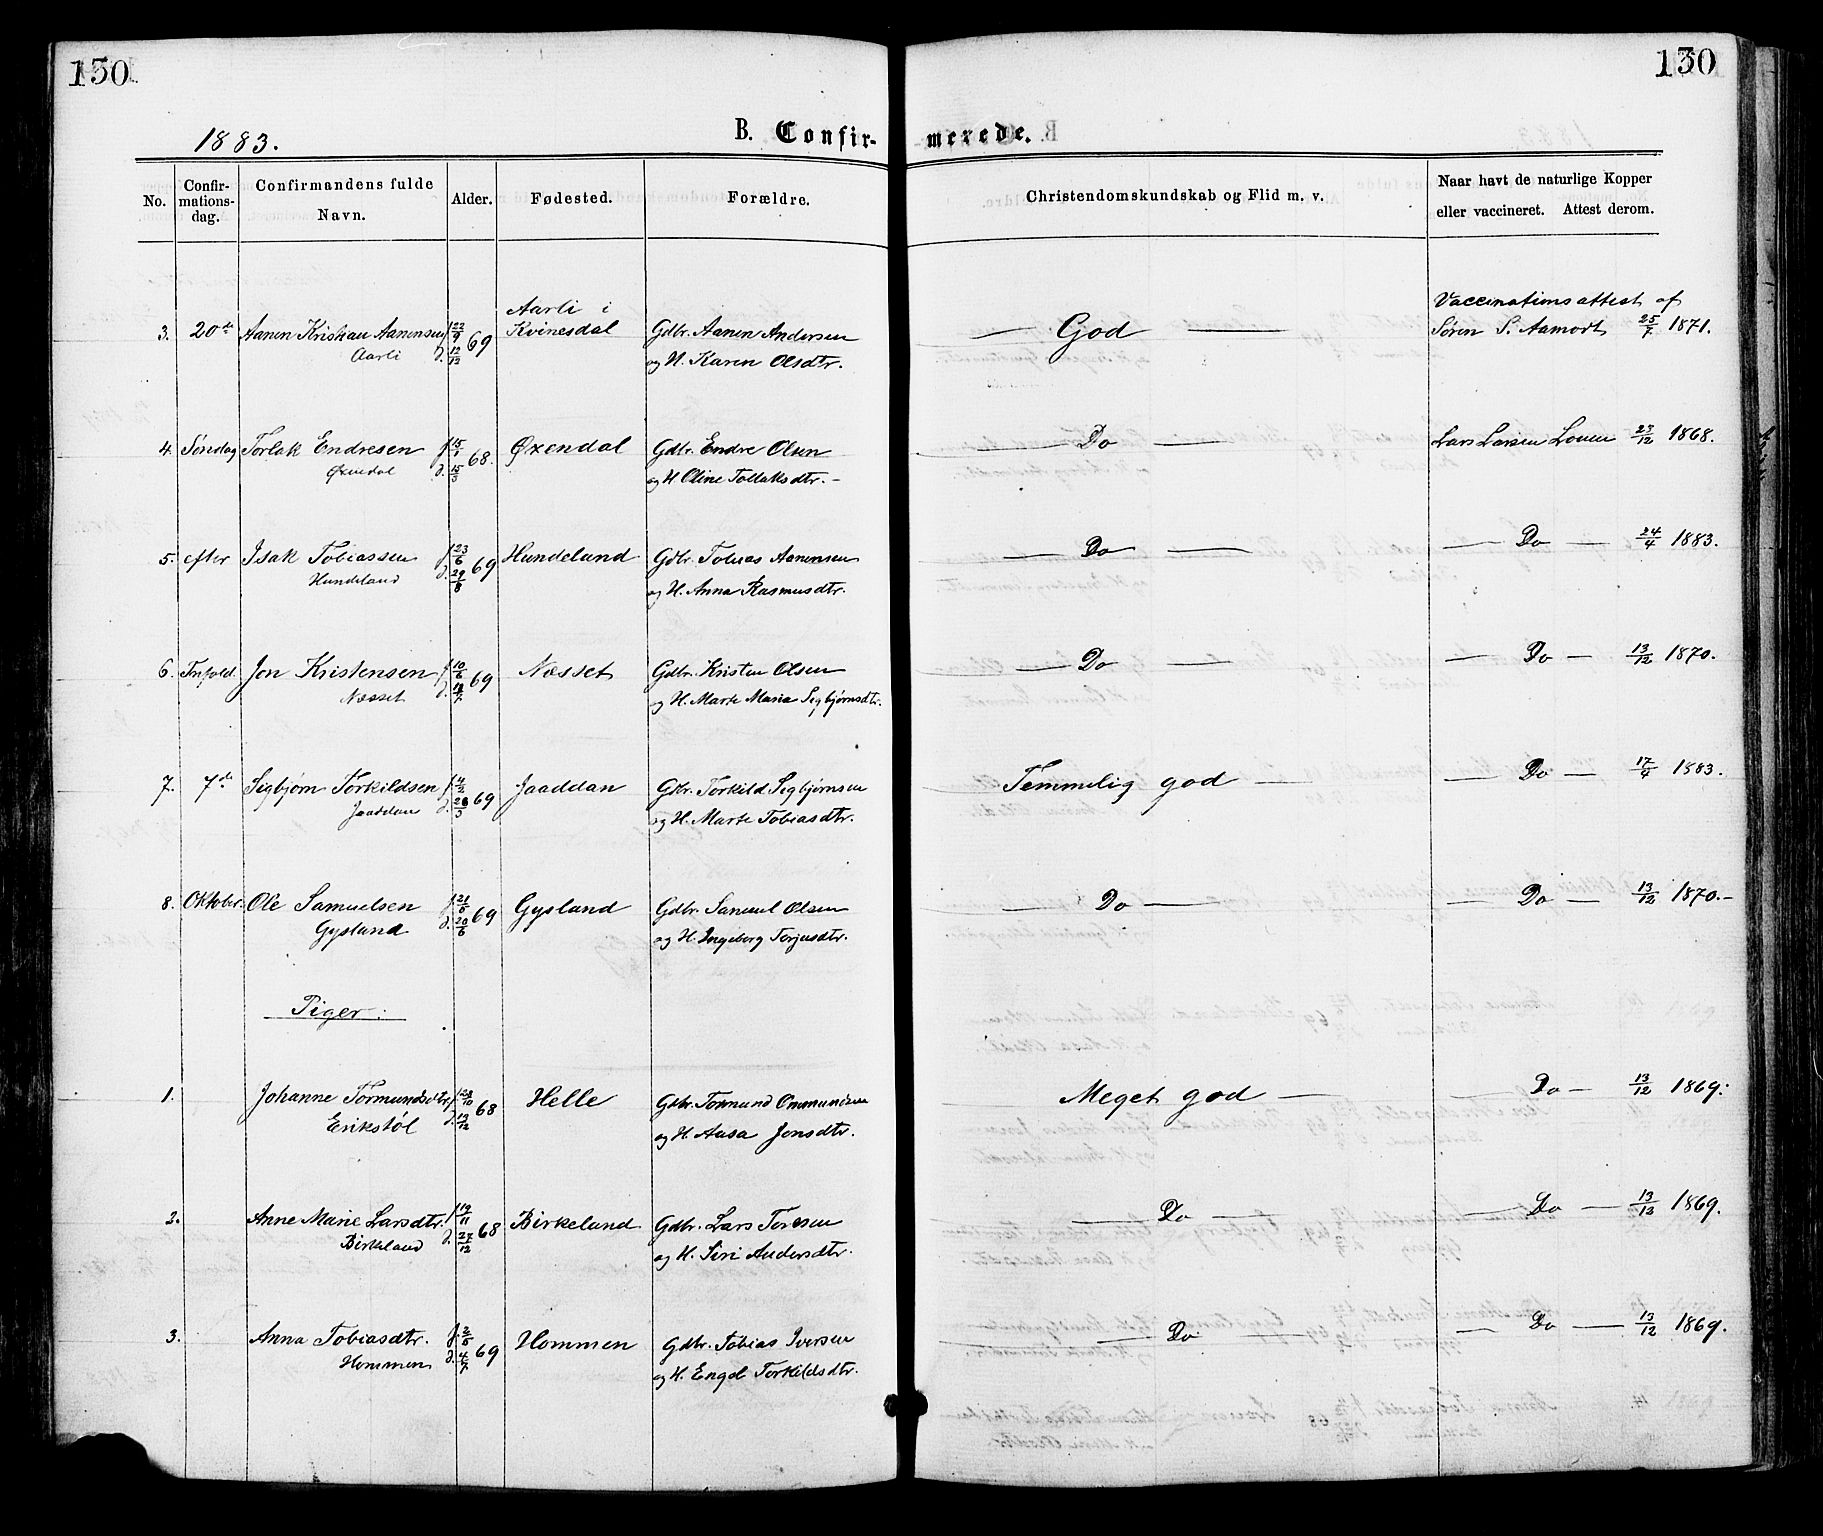 130
130
1883.
B. Confir-
merede.
No.
Confir-
mations-
dag.
Confirmandens fulde
Navn.
Alder.
Fødested.
Forældre.
Christendomskundskab og Flid m. v.
Naar havt de naturlige Kopper
eller vaccineret. Attest derom.
3. 20de Aanen Kristian Aanensen f. 22/9 69 Aarli i
Kvinesdal Gdbr. Aanen Andersen — God — Vaccinationsattest af
Aarli d. 12/12 og H. Karen Olsdtr. Søren S. Aamodt 25/7 1871.
4. Søndag Torlak Endresen f. 15/1 68. Øxendal Gdbr. Endre Olsen — Do — Lars Larsen Louen 23/12 1868.
Øxendal d. 15/3 og H. Oline Tollaksdtr. -
5. efter Isak Tobiassen f. 23/6 69 Hundeland Gdbr. Tobias Aanensen — Do — — Do — 24/4 1883.
Hundeland d. 29/8 og H. Anna Rasmusdtr.
6. Trefold. Jon Kristensen f. 10/6 69 Næsset Gdbr. Kristen Olsen — Do — — Do — 13/12 1870.
Næsset d. 18/7 og H. Marte Maria Sigbjørnsdtr.
7. 7de Sigbjørn Torkildsen f. 4/2 69 Jaaddan Gbr. Torkild Sigbjørnsen Temmelig god — — Do — 17/4 1883.
Jaaddan d. 28/3 og H. Marte Tobiasdtr.
8. Oktober. Ole Samuelsen f. 21/5 69 Gysland Gdbr. Samuel Olsen — Do — — Do — 13/12 1870.-
Gysland d. 20/6 og H. Ingeborg Torjusdtr.
Piger:
1. Johanne Tormundsdtr. f. 28/10 68 Helle Gdbr. Tormund Ommundsen Meget god — — Do — 13/12 1869.
Erikstøl d. 13/12 og H. Aasa Jonsdtr.
2. Anne Marie Larsdtr. f. 19/11 68 Birkeland Gdbr. Lars Toresen — Do — — Do — 13/12 1869.
Birkeland d. 27/12 og H. Siri Andersdtr.
3. Anna Tobiasdtr. f. 2/5 69 Hommen Gdbr. Tobias Iversen — Do — — Do — 13/12 1869.
Hommen d. 4/7 og H. Engel Torkildsdtr.